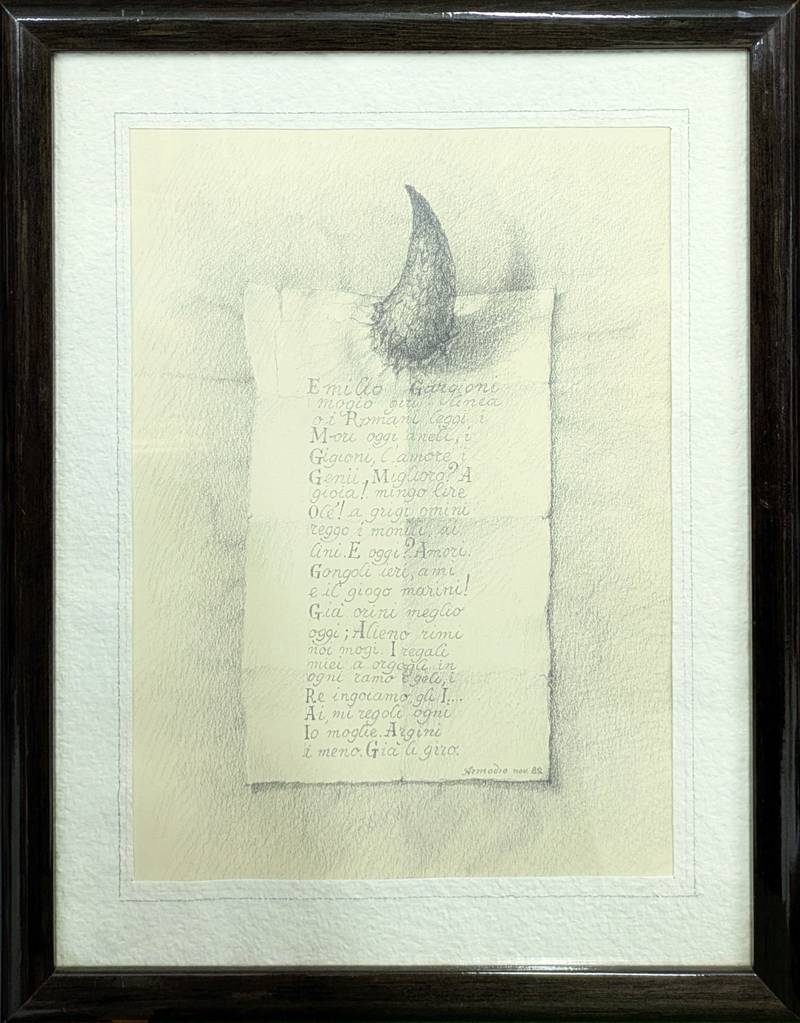 Emilio Gargioni
mogio giri linea
o i Romani leggi, i
M-ori oggi aneli, i
Gigioni, l'amore, i
Genii, Miglioro? A
gioia! mingo lire
Olé! a grigi omini
reggo i monili, ai
lini. E oggi? Amori.
Gongoli ieri, ami
e il giogo marini!
Già orini meglio
oggi; Alieno rimi
noi mogi. I regali
miei a orgogli in
ogni ramo è geli, i
Re ingoiamo, gli I....
Ai, mi regoli ogni
Io moglie. Argini
i meno. Già li giro.
Armodio nov. 82